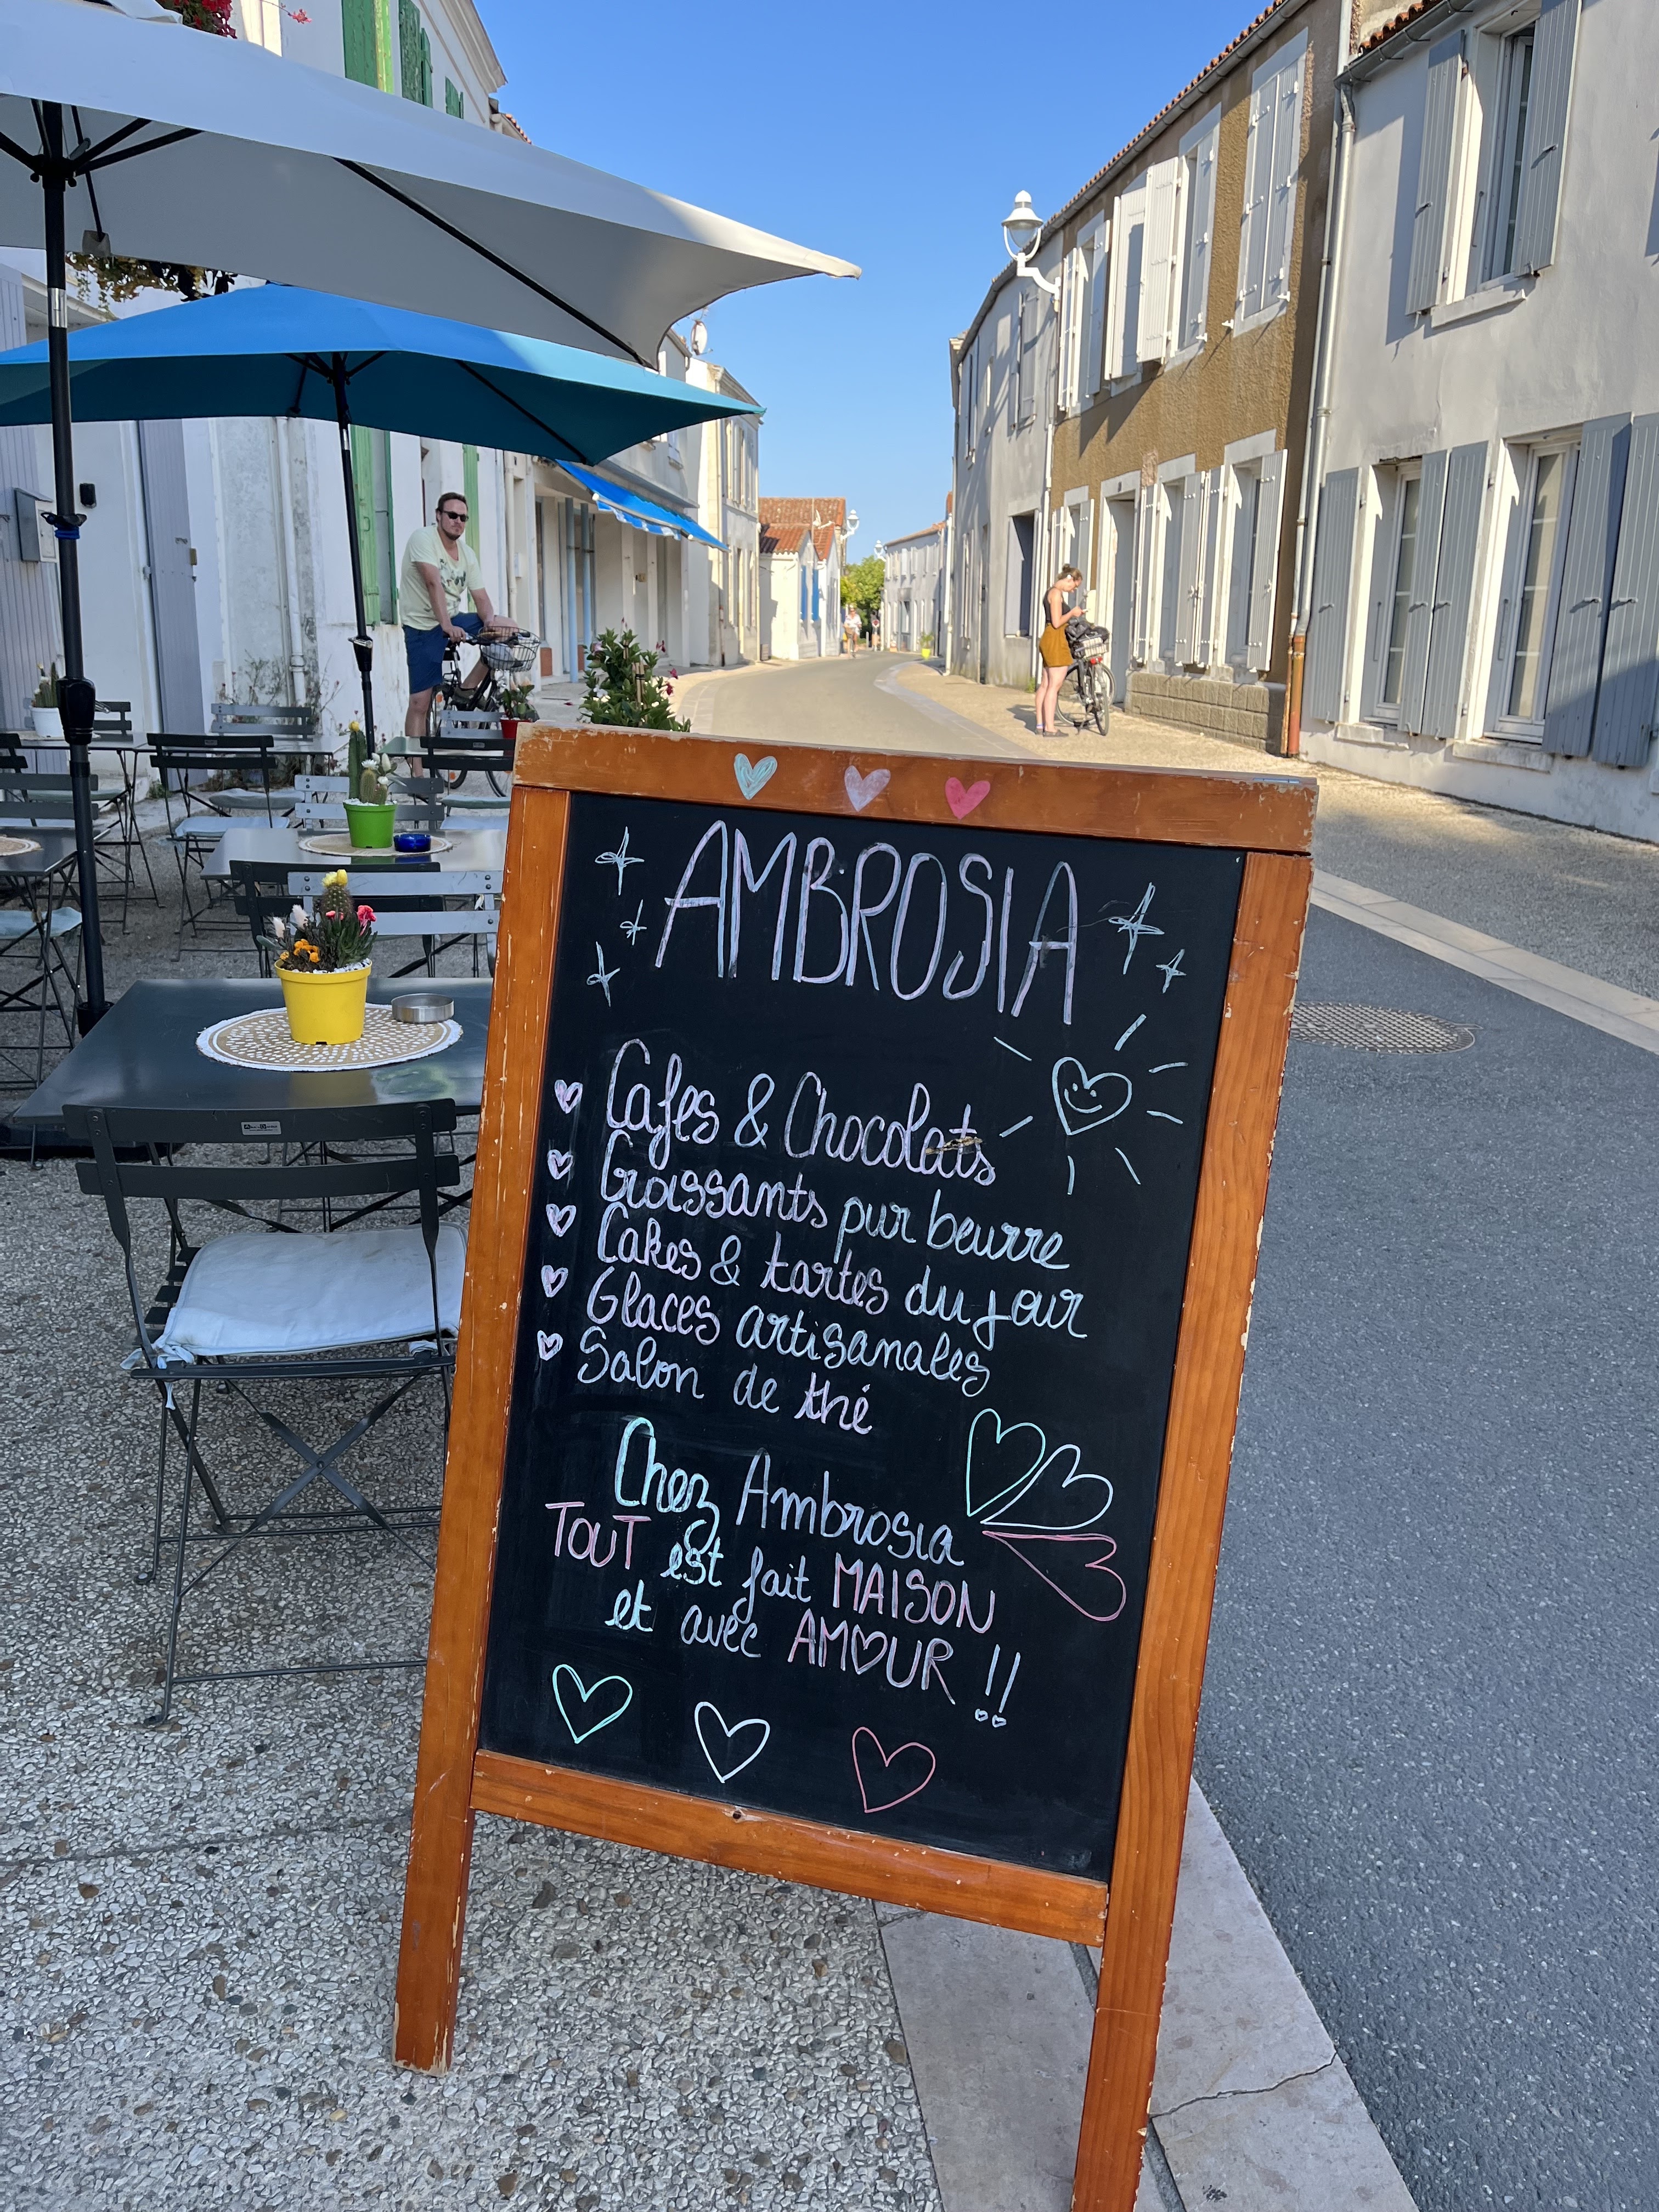 AMBROSIA
Cafes & Chocolats
Croissants pur beurre
Cakes & tartes du jour
Glaces artisanales
Salon de thé
Chez Ambrosia
TOUT est fait MAISON
et avec AMOUR !!